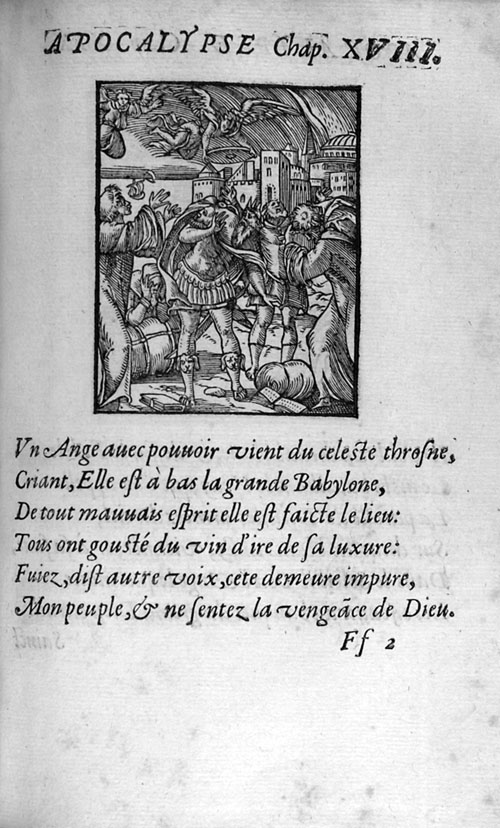 APOCALYPSE Chap. XVIII.
Vn Ange auec pouuoir vient du celeste throsne,
Criant, Elle est à bas la grande Babylone,
De tout mauuais esprit elle est faicte le lieu:
Tous ont gousté du vin d'ire de sa luxure:
Fuiez, dist autre voix, cete demeure impure,
Mon peuple, & ne sentez la vengeãce de Dieu.
Ff 2